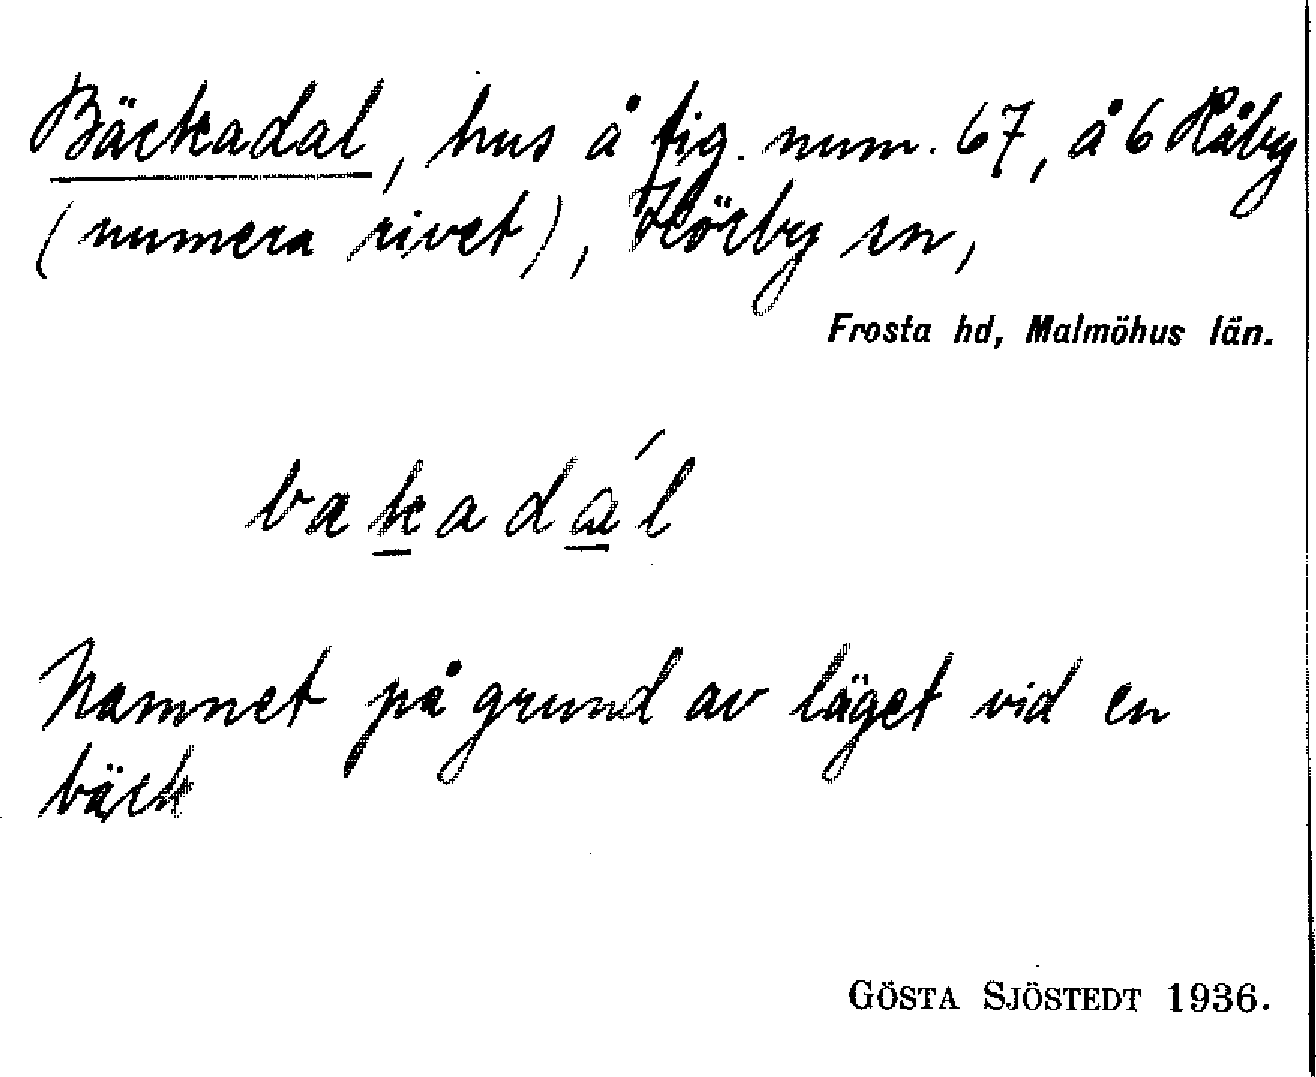 Bäckadal, hus å fig. num. 67, å 6 Råby
(numera rivet), Hörby sn,
Frosta hd, Malmöhus län.
bakadál
Namnet på grund av läget vid en
bäck
GÖSTA SJÖSTEDT 1936.